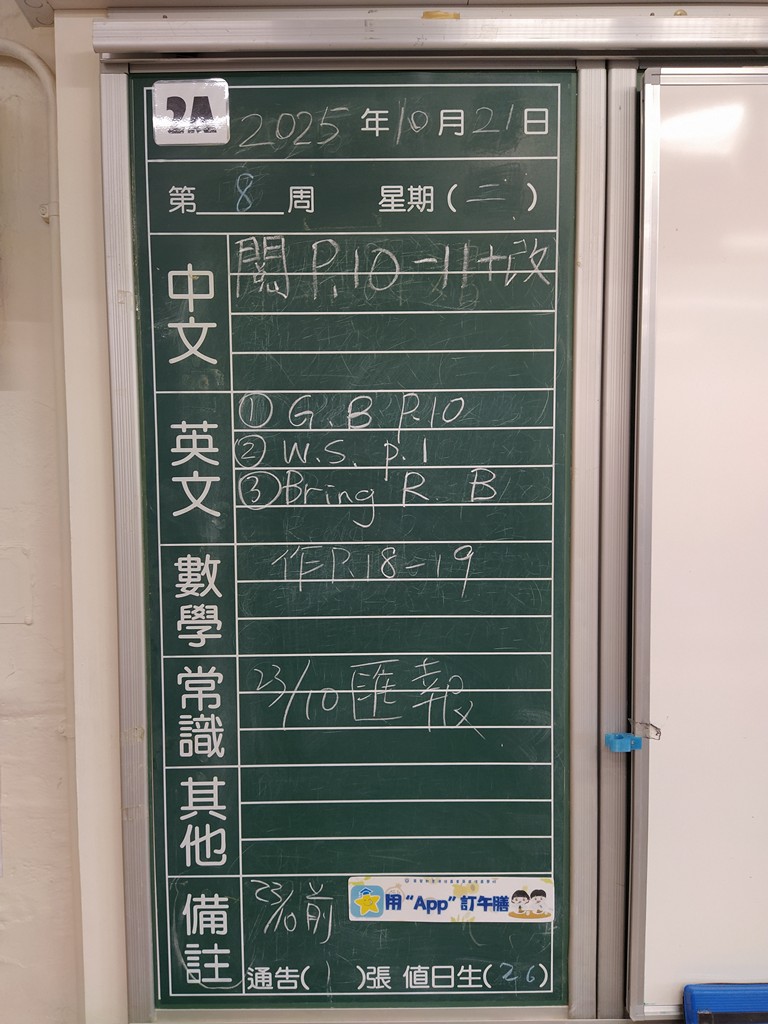 2A
2025年10月21日
第8周 星期(二)
中文
閱 P.10-11+改
英文
① G.B P.10
② W.S. p.1
③ Bring R.B
數學
作P.18-19
常識
23/10 匯報
其他
備註
23/10前
用“App”訂午膳
通告(1)張 值日生(26)